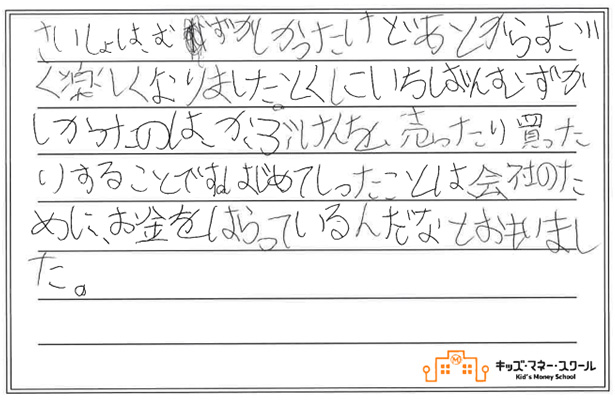 さいしょは、むずかしかったけどあとからすご
く楽しくなりました。とくにいちばんむずか
しかったのは、かぶけんを、売ったり買った
りすることですね。はじめてしったことは、会社のた
めに、お金をはらっているんだなとおもいまし
た。
キッズ・マネー・スクール
Kid's Money School